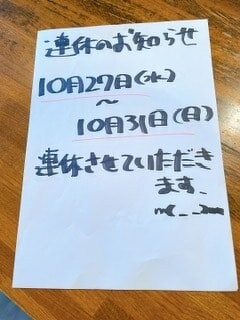 連休のお知らせ
10月27日(水)
～
10月31日(日)
連休させていただき
ます、
m(_ _)m